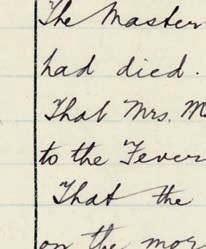 The Master
had died.
That Mrs. M
to the Fever
That the
on the mor